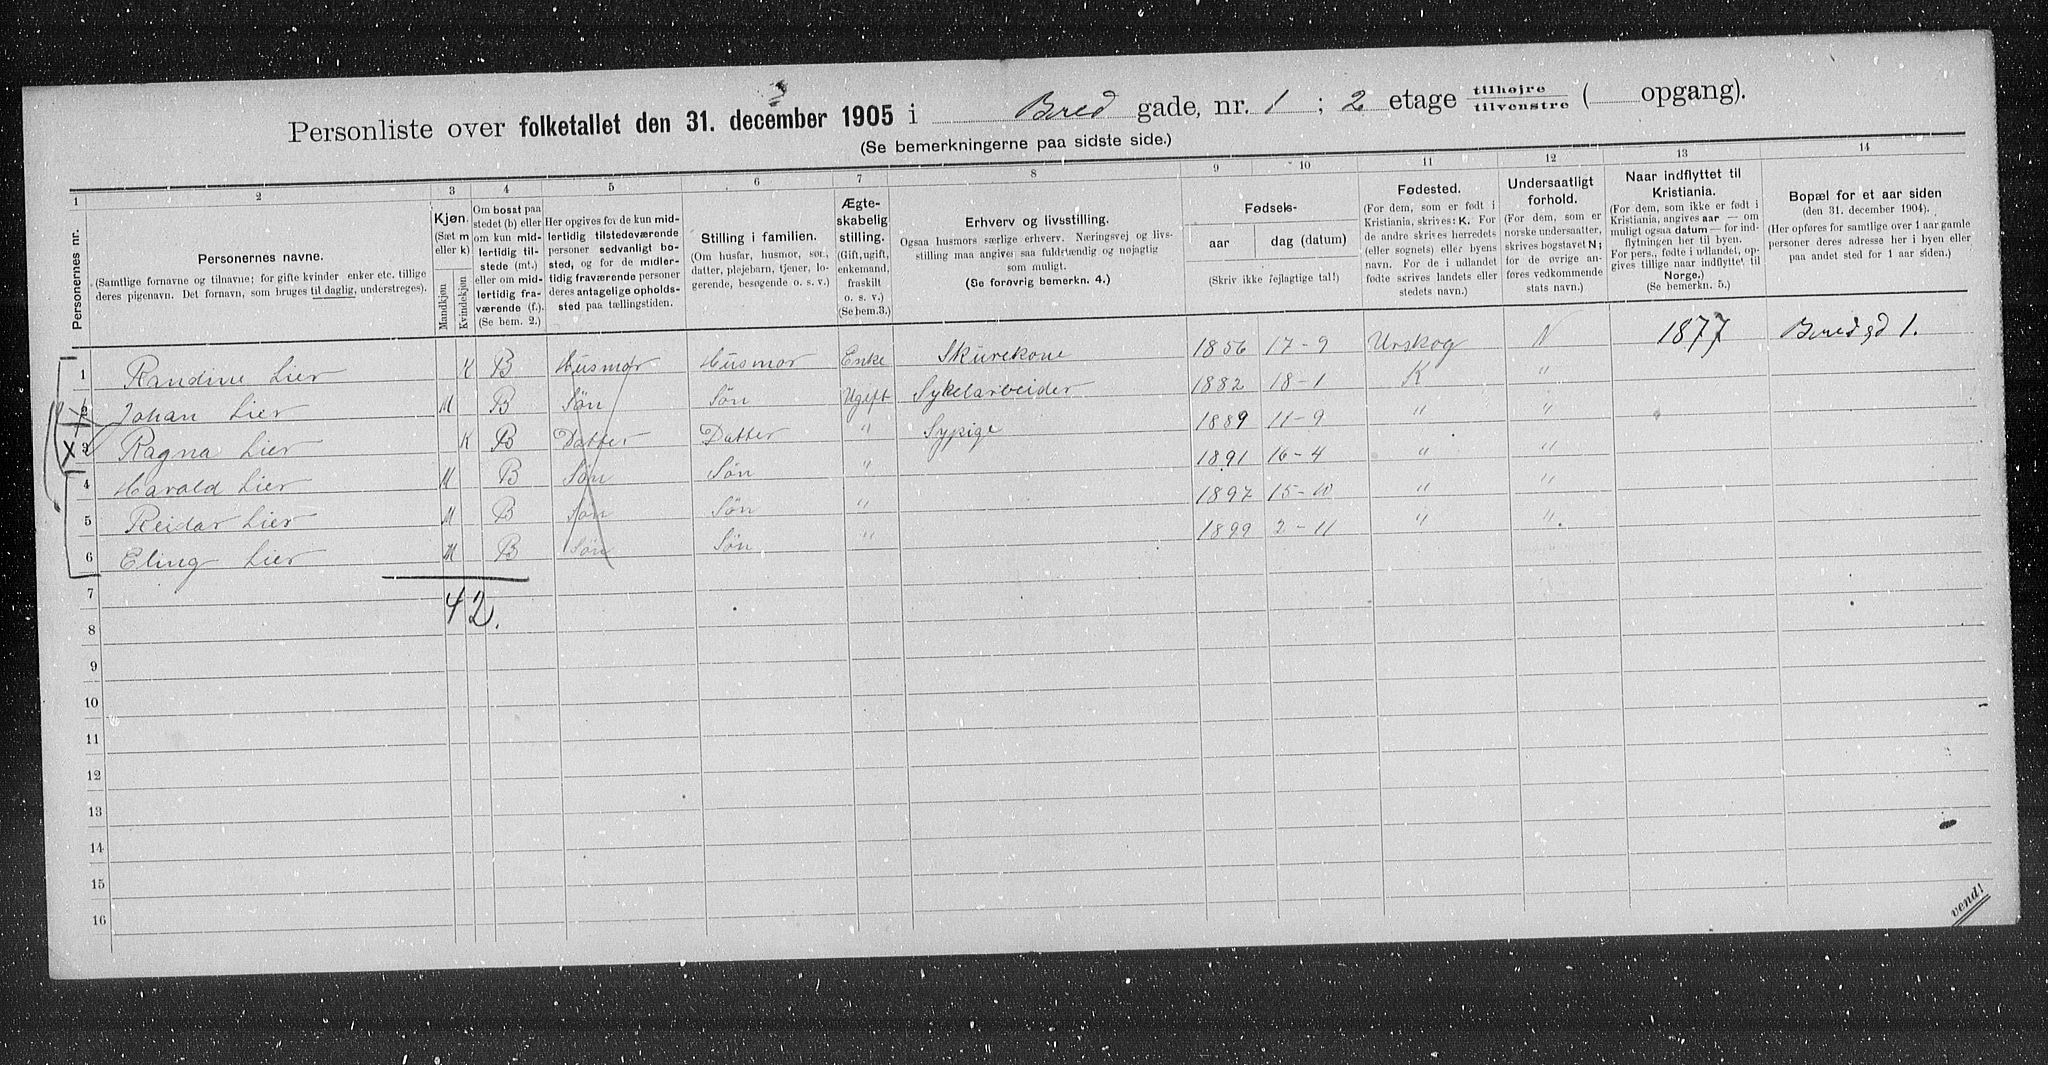 Personliste over folketallet den 31. december 1905 i Bred gade, nr. 1 ; 2 etage tilhøjre tilvenstre ( opgang).
(Se bemerkningerne paa sidste side.)
1 2 3 4 5 6 7 8 9 10 11 12 13 14
Personernes nr.
Personernes navne.
(Samtlige fornavne og tilnavne; for gifte kvinder, enker etc. tillige
deres pigenavn. Det fornavn, som bruges til daglig, understreges).
Kjøn.
(Sæt m
eller k)
Mandkjøn
Kvindekjøn
Om bosat paa
stedet (b) eller
om kun mid-
lertidig til-
stede (mt.)
eller om mid-
lertidig fra-
værende (f.).
(Se bem. 2.)
Her opgives for de kun mid-
lertidig tilstedeværende
personer sedvanligt bo-
sted, og for de midler-
tidig fraværende personer
deres antagelige opholds-
sted paa tællingstiden.
Stilling i familien.
(Om husfar, husmor, søn,
datter, plejebarn, tjener, lo-
gerende, besøgende o. s. v.)
Ægte-
skabelig
stilling.
(Gift, ugift,
enkemand,
fraskilt
o. s. v.)
(Se bem.3.)
Erhverv og livsstilling.
Ogsaa husmors særlige erhverv. Næringsvej og livs-
stilling maa angives saa fuldstændig og nøjagtig
som muligt.
(Se forøvrig bemerkn. 4.)
Fødsels-
aar dag (datum)
(Skriv ikke fejlagtige tal!)
Fødested.
(For dem, som er født i
Kristiania, skrives: K. For
de andre skrives herredets
(eller sognets) eller byens
navn. For de i udlandet
fødte skrives landets eller
stedets navn.)
Undersaatligt
forhold.
(For dem, som er
norske undersaatter,
skrives bogstavet N;
for de øvrige an-
føres vedkommende
stats navn.)
Naar indflyttet til
Kristiania.
(For dem, som ikke er født i
Kristiania, angives aar — om
muligt ogsaa datum — for ind-
flytningen her til byen.
For pers., fødte i udlandet, op-
gives tillige naar indflyttet til
Norge.)
(Se bemerkn. 5.)
Bopæl for et aar siden
(den 31. december 1904).
(Her opføres for samtlige over 1 aar gamle
personer deres adresse her i byen eller
paa andet sted for 1 aar siden.)
1 Randine Lier K B Husmor Husmor Enke Skurekone 1856 17-9 Urskog N 1877 Bredgd 1.
2 Johan Lier M B Søn Søn Ugift Sykelarbeider 1882 18-1 K "
3 Ragna Lier K B Datter Datter " Sypige 1889 11-9 " "
4 Harald Lier M B Søn Søn " 1891 16-4 " "
5 Reidar Lier M B Søn Søn " 1897 15-10 " "
6 Eling Lier M B Søn Søn " 1899 2-11 " "
7
42.
8
9
10
11
12
13
14
15
16
vend!